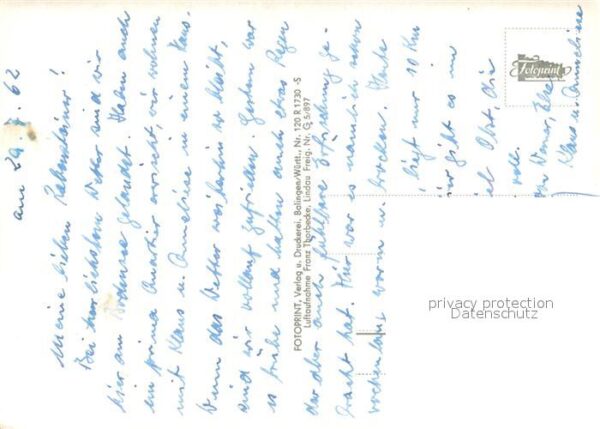 am 29. 7. 62
Meine lieben Rabensteiner!
Bei herrlichstem Wetter sind wir
hier am Bodensee gelandet. Haben auch
ein prima Quartier erwischt, wir wohnen
mit Klaus u. Annelise in einem Haus.
Wenn das Wetter weiterhin so bleibt,
sind wir vollauf zufrieden. Gestern war
es trübe und haben auch etwas Regen
der aber auch
bracht hat. Hier war es nämlich schon
wochenlang warm u. trocken. Heute
liegt nur 10 Km
hier gibt es
viel Obst,
voll.
von Werner,
Klaus u. Annelise
FOTOPRINT, Verlag u. Druckerei, Balingen/Württ., Nr. 120 R 1730 -S
Luftaufnahme Franz Thorbecke, Lindau Freig. Nr. G 5/897
Fotoprint
privacy protection
Datenschutz